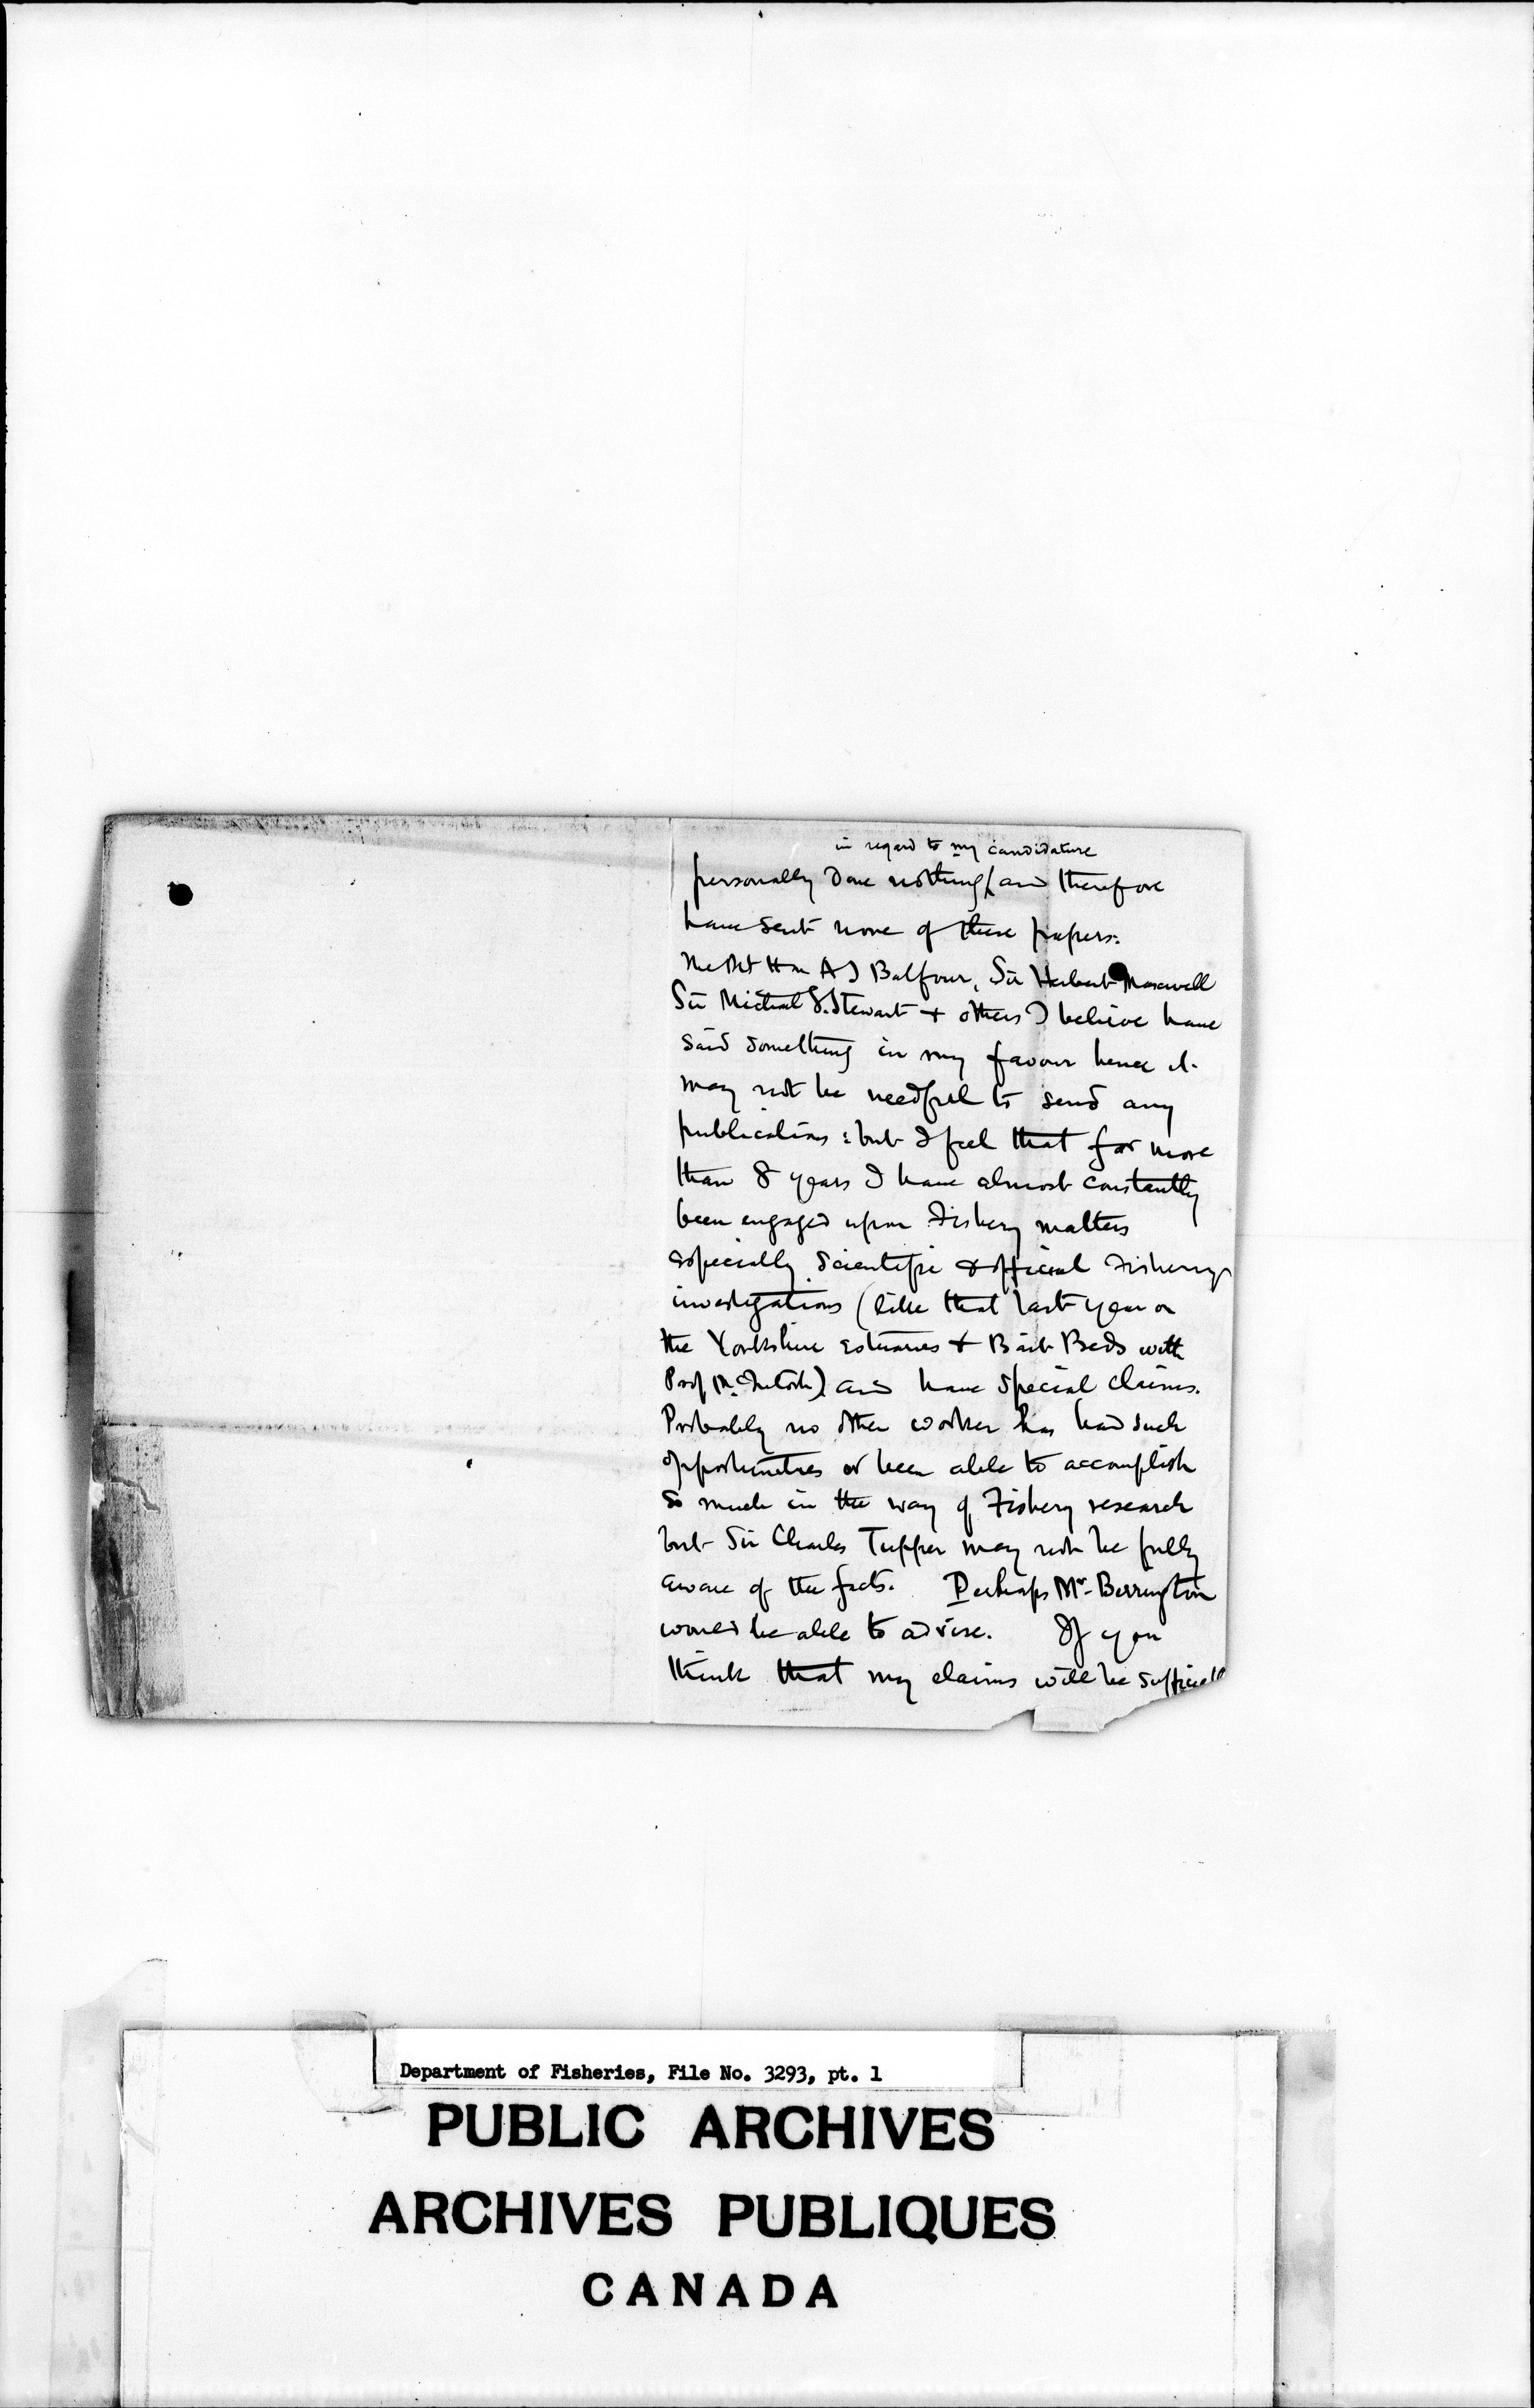 in regard to my candidature
personally done nothing ( and therefore
have sent none of these papers:
The Rt Hon A J Balfour, Sir Herbert Maxwell
Sir Michael S. Stewart + others I believe have
said something in my favour hence it
may not be needful to send any
publications : but I feel that for more
than 8 years I have almost constantly
been engaged upon Fishery matters
especially Scientific & official Fishery
investigations (like that last year on
the Yorkshire estuaries + Bait Beds with
Prof McIntosh) and have special claims.
Probably no other worker has had such
opportunities or been able to accomplish
so much in the way of Fishery research
but Sir Charles Tupper may not be fully
aware of the facts. Perhaps Mr. Berrington
would be able to advise. If you
think that my claims will be
Department of Fisheries, File No. 3293, pt. 1
PUBLIC ARCHIVES
ARCHIVES PUBLIQUES
CANADA